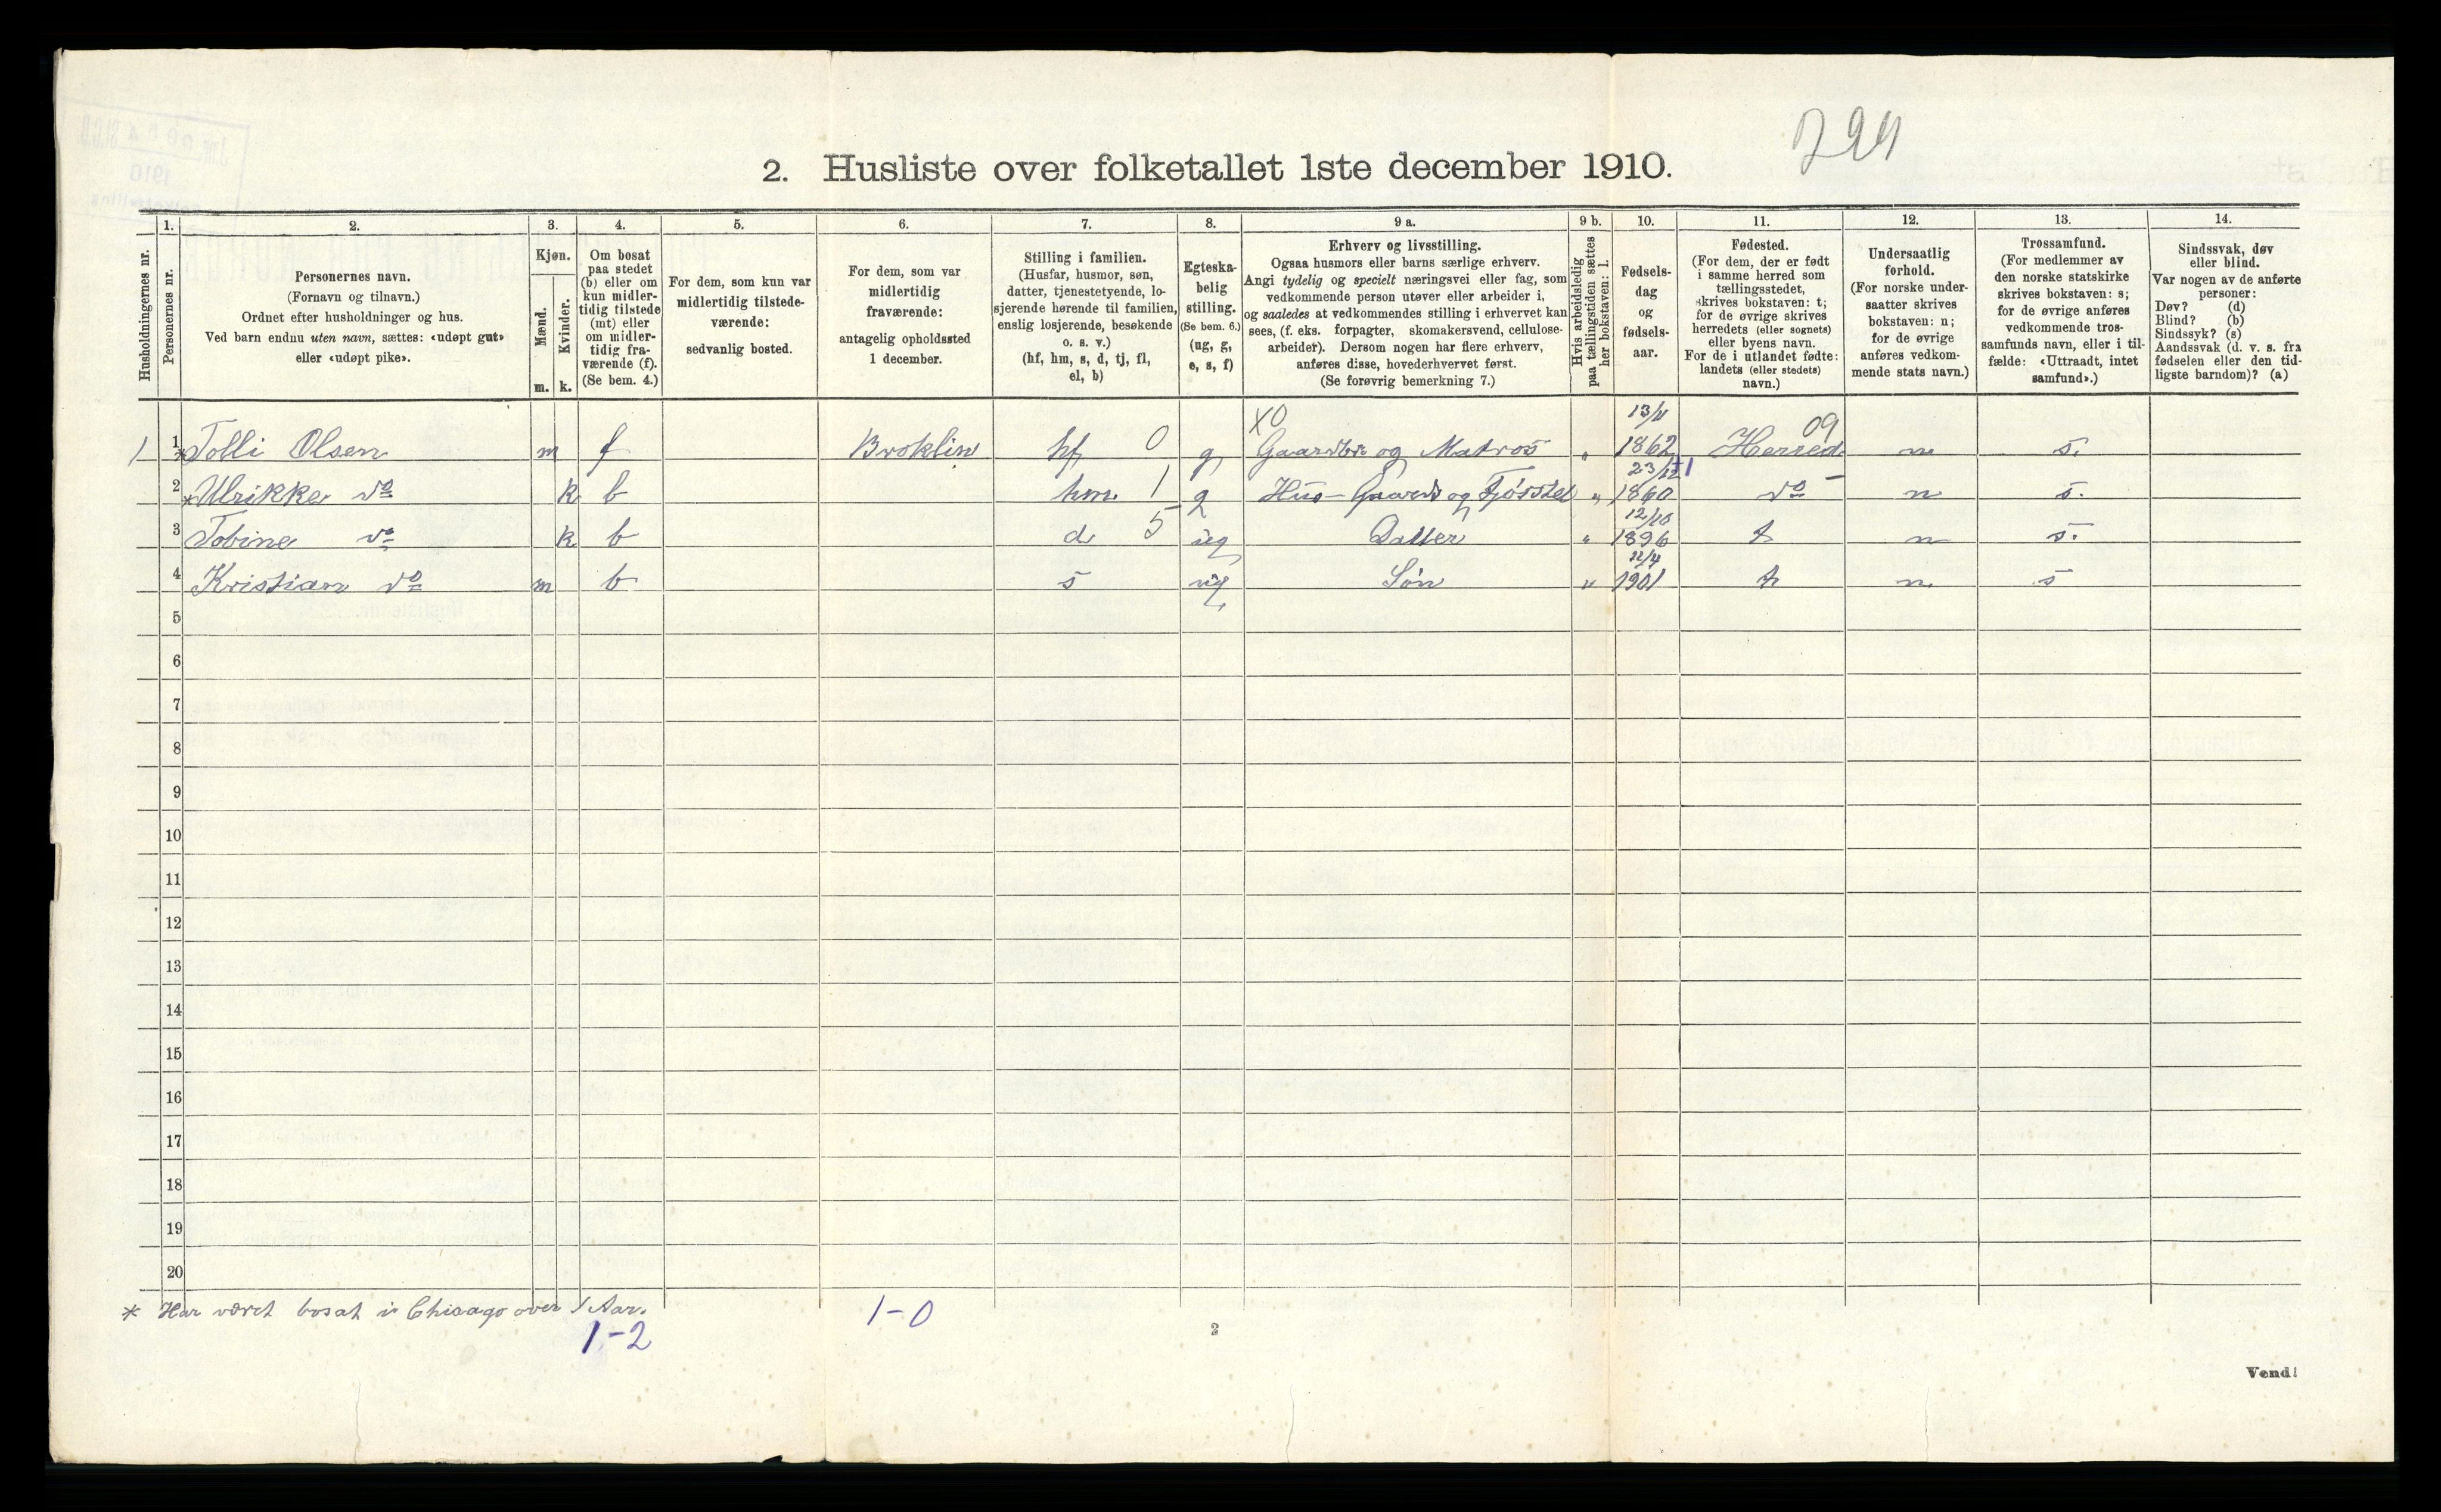 2. Husliste over folketallet 1ste december 1910.
Husholdningernes nr.
1.
Personernes nr.
2.
Personernes navn.
(Fornavn og tilnavn.)
Ordnet efter husholdninger og hus.
Ved barn endnu uten navn, sættes: «udøpt gut»
eller «udøpt pike».
3.
Kjøn.
Mænd.
Kvinder.
m. k.
4.
Om bosat
paa stedet
(b) eller om
kun midler-
tidig tilstede
(mt) eller
om midler-
tidig fra-
værende (f).
(Se bem. 4.)
5.
For dem, som kun var
midlertidig tilstede-
værende:
sedvanlig bosted.
6.
For dem, som var
midlertidig
fraværende:
antagelig opholdssted
1 december.
7.
Stilling i familien.
(Husfar, husmor, søn,
datter, tjenestetyende, lo-
sjerende hørende til familien,
enslig losjerende, besøkende
o. s. v.)
(hf, hm, s, d, tj, fl,
el, b)
8.
Egteska-
belig
stilling.
(Se bem. 6.)
(ug, g,
e, s, f)
9 a.
Erhverv og livsstilling.
Ogsaa husmors eller barns særlige erhverv.
Angi tydelig og specielt næringsvei eller fag, som
vedkommende person utøver eller arbeider i,
og saaledes at vedkommendes stilling i erhvervet kan
sees, (f. eks. forpagter, skomakersvend, cellulose-
arbeider). Dersom nogen har flere erhverv,
anføres disse, hovederhvervet først.
(Se forøvrig bemerkning 7.)
9 b.
Hvis arbeidsledig
paa tællingstiden sættes
her bokstaven: l.
10.
Fødsels-
dag
og
fødsels-
aar.
11.
Fødested.
(For dem, der er født
i samme herred som
tællingsstedet,
skrives bokstaven: t;
for de øvrige skrives
herredets (eller sognets)
eller byens navn.
For de i utlandet fødte:
landets (eller stedets)
navn.)
12.
Undersaatlig
forhold.
(For norske under-
saatter skrives
bokstaven: n;
for de øvrige
anføres vedkom-
mende stats navn.)
13.
Trossamfund.
(For medlemmer av
den norske statskirke
skrives bokstaven: s;
for de øvrige anføres
vedkommende tros-
samfunds navn, eller i til-
fælde: «Uttraadt, intet
samfund».)
14.
Sindssvak, døv
eller blind.
Var nogen av de anførte
personer:
Døv? (d)
Blind? (b)
Sindssyk? (s)
Aandssvak (d. v. s. fra
fødselen eller den tid-
ligste barndom)? (a)
X0 13/11 09
1 1 *Tolli Olsen m f Broklin hf 0 g Gaardbr og Matros " 1862 Herred n s.
23/12
2 *Ulrikke do k b hm. 1 g Hus- Gaards og Fjösstel " 1860 do n s.
12/10
3 Tobine do k b d 5 ug Datter " 1896 t n s.
22/4
4 Kristian do m b s ug Søn " 1901 t n. s
5
6
7
8
9
10
11
12
13
14
15
16
17
18
19
20
* Har været bosat i Chicago over 1 Aar.
1-0
1-2
2
Vend!